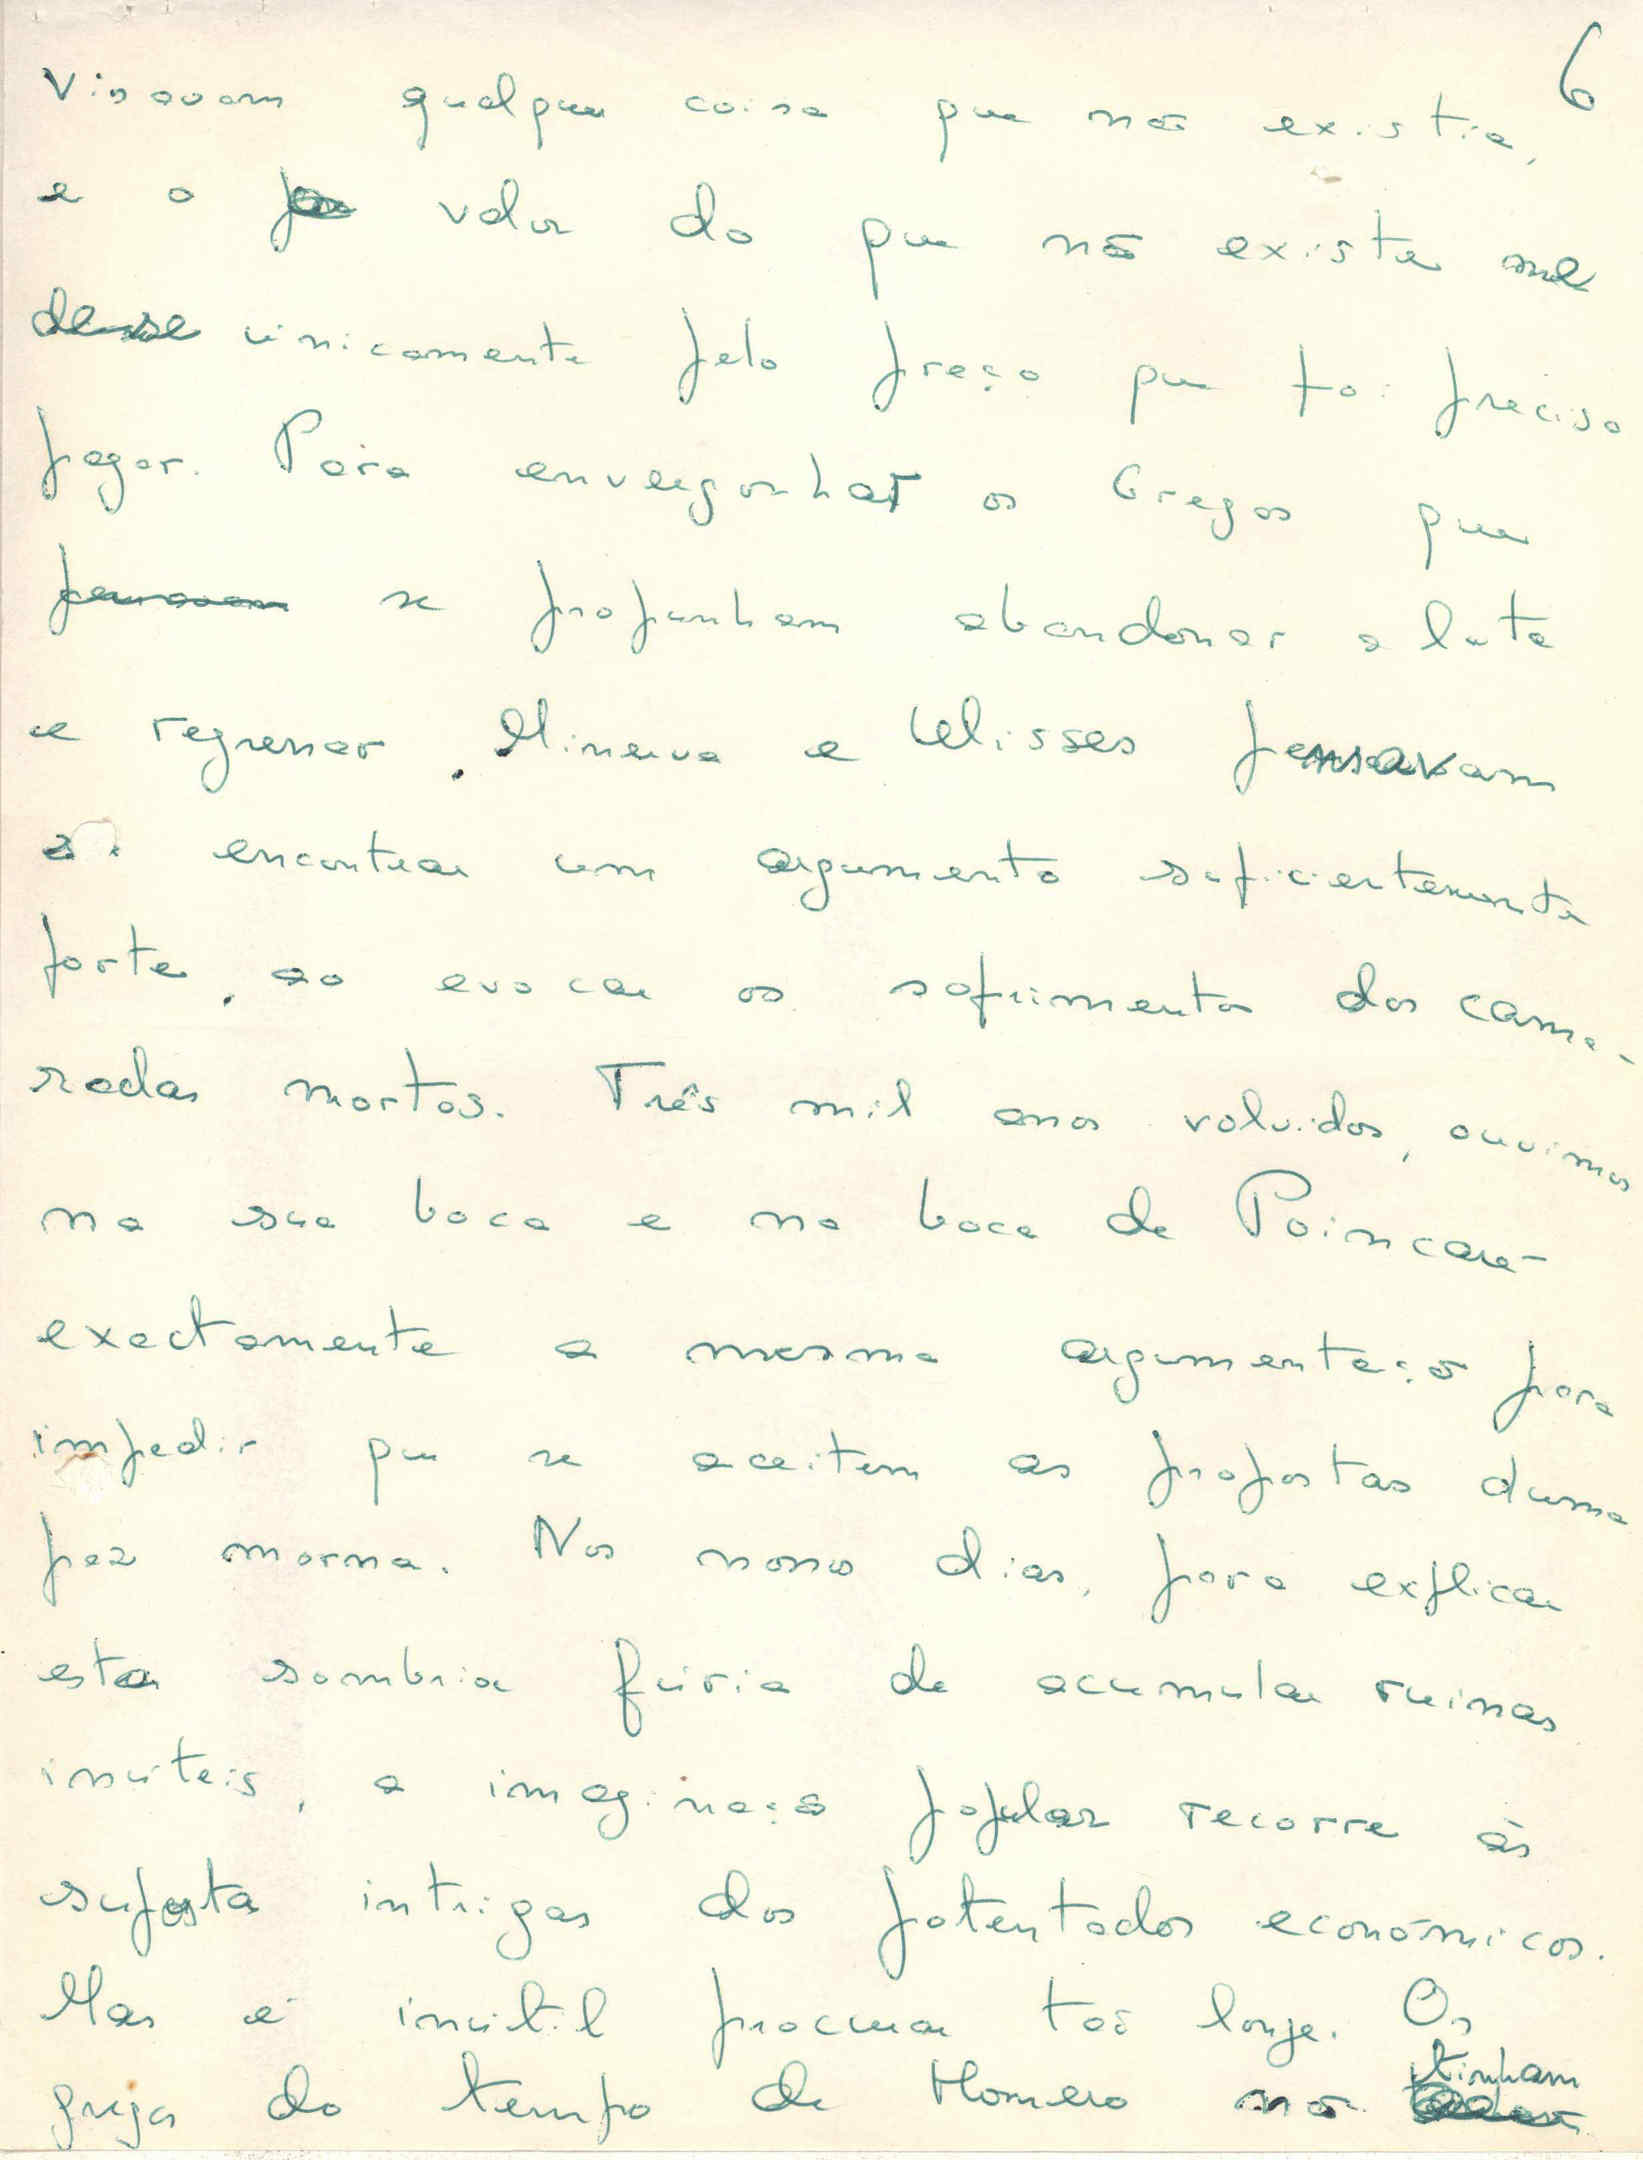 6
Visavam qualquer coisa que não existia,
e o valor do que não existe me
de-se ùnicamente pelo preço que foi preciso
pagar. Para envergonhar os Gregos que
pensavam se propunham abandonar a luta
e regressar, Minerva e Ulisses pensavam
encontrar um argumento suficientemente
forte, ao evocar os sofrimentos dos cama-
radas mortos. Três mil anos volvidos, ouvimos
na sua boca e na boca de Poincaré
exactamente a mesma argumentação para
impedir que se aceitem as propostas duma
paz morna. Nos nossos dias, para explicar
esta sombria fúria de acumular ruinas
inúteis, a imaginação popular recorre às
supostas intrigas dos potentados económicos.
Mas é inútil procurar tão longe. Os
tinham
gregos do tempo de Homero não